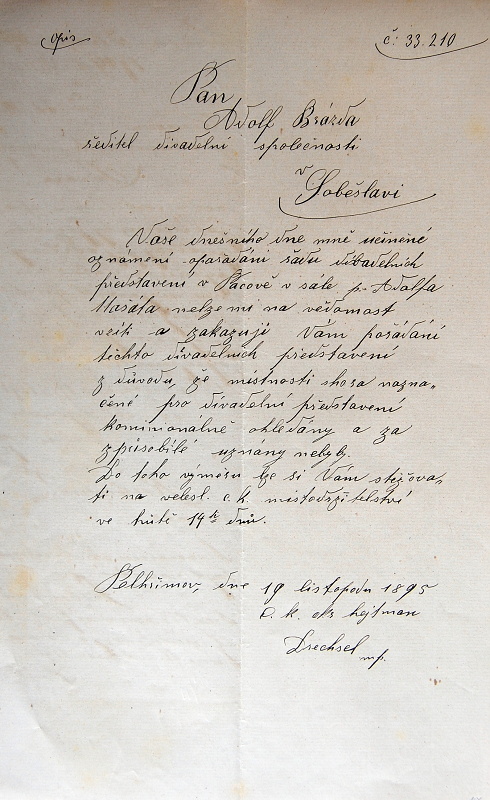 Opis
č: 33.210
Pan
Adolf Brázda
ředitel divadelní společnosti
v
Soběslavi
Vaše dnešního dne mně učiněné
oznámení o pořádání řadu divadelních
představení v Pacově v sále p. Adolfa
Mašáta nelze mi na vědomost
vzíti a zakazuji Vám pořádání
těchto divadelních představení
z důvodu, že místnosti shora nazna-
čené pro divadelní představení
komisionalně ohledány a za
způsobilé uznány nebyly.
Do toho výměru lze si Vám stěžova-
ti na velesl. c. k. místodržitelství
ve lhůtě 14ti dnů.
Pelhřimov, dne 19 listopadu 1895
C. k. okr hejtman
Drechsel
mp.